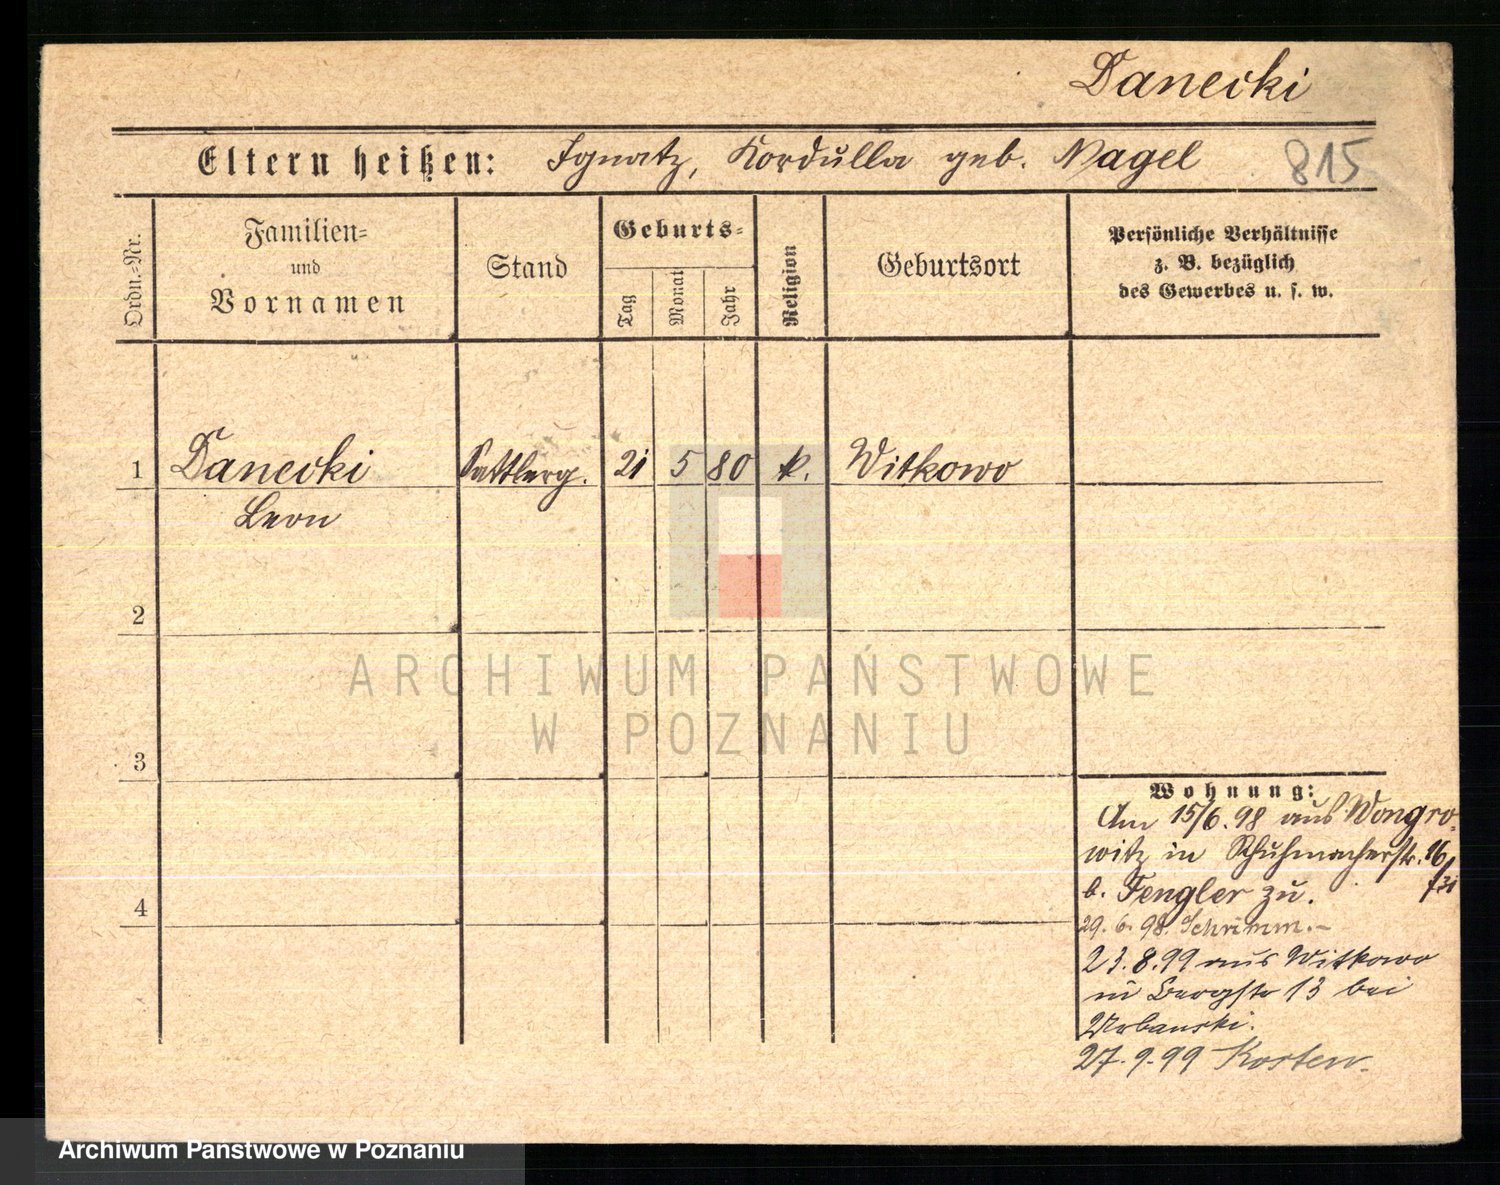 Danecki
Eltern heißen: Ignatz, Kordulla geb. Nagel 815
Ordn.-Nr.
Familien-
und
Vornamen
Stand
Geburts-
Tag
Monat
Jahr
Religion
Geburtsort
Persönliche Verhältnisse
z. B. bezüglich
des Gewerbes u. s. w.
1 Danecki Sattlerg. 21 5 80 k. Witkowo
Leon
2
3
4
ARCHIWUM PAŃSTWOWE
W POZNANIU
Wohnung:
Am 15/6.98 aus Wongro-
witz in Schuhmacherstr. 16/
b. Fengler zu.
29.6.98. Schrimm.-
23.8.99 aus Witkowo
in Bergstr 13 bei
Urbanski.
27.9.99 Kosten.
Archiwum Państwowe w Poznaniu